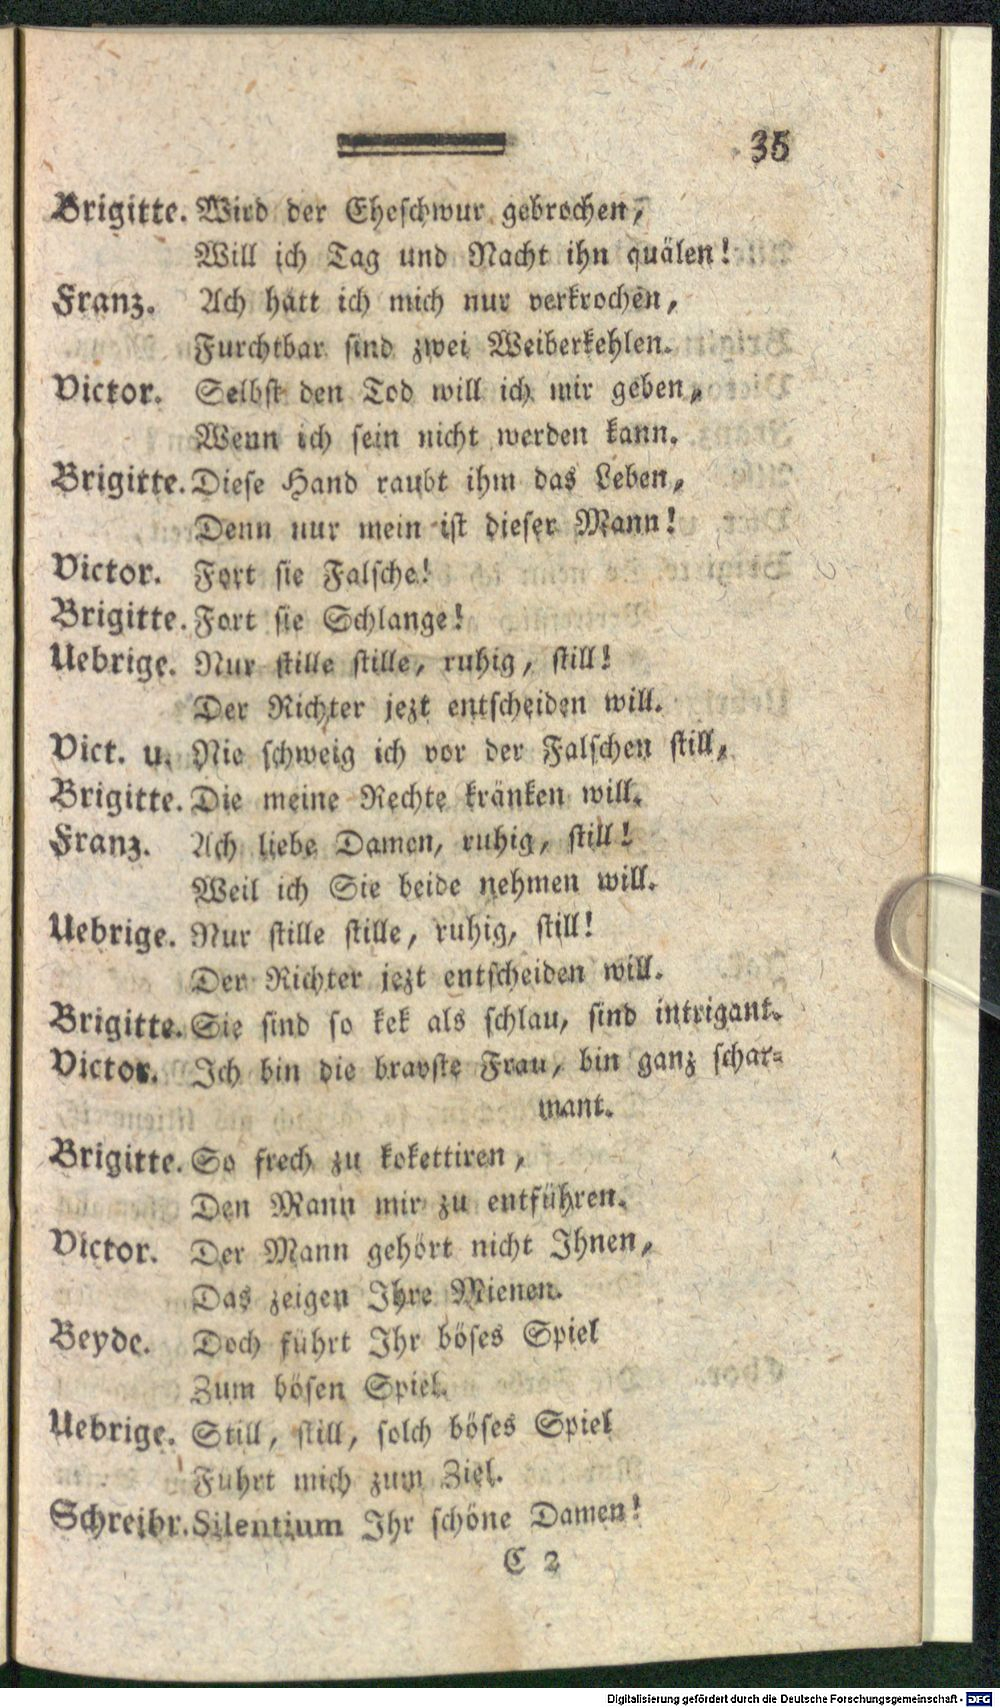 35
Brigitte. Wird der Eheschwur gebrochen,
Will ich Tag und Nacht ihn quälen!
Franz. Ach hätt ich mich nur verkrochen,
Furchtbar sind zwei Weiberkehlen.
Victor. Selbst den Tod will ich mir geben,
Wenn ich sein nicht werden kann.
Brigitte. Diese Hand raubt ihm das Leben,
Denn nur mein ist dieser Mann!
Victor. Fort sie Falsche!
Brigitte. Fort sie Schlange!
Uebrige. Nur stille stille, ruhig, still!
Der Richter jezt entscheiden will.
Vict. u. Nie schweig ich vor der Falschen still,
Brigitte. Die meine Rechte kränken will.
Franz. Ach liebe Damen, ruhig, still!
Weil ich Sie beide nehmen will.
Uebrige. Nur stille stille, ruhig, still!
Der Richter jezt entscheiden will.
Brigitte. Sie sind so kek als schlau, sind intrigant.
Victor. Ich bin die bravste Frau, bin ganz schar-
mant.
Brigitte. So frech zu kokettiren,
Den Mann mir zu entführen.
Victor. Der Mann gehört nicht Ihnen,
Das zeigen Ihre Mienen.
Beyde. Doch führt Ihr böses Spiel
Zum bösen Spiel.
Uebrige. Still, still, solch böses Spiel
Führt mich zum Ziel.
Schreibr. Silentium Ihr schöne Damen!
C 2
Digitalisierung gefördert durch die Deutsche Forschungsgemeinschaft - DFG